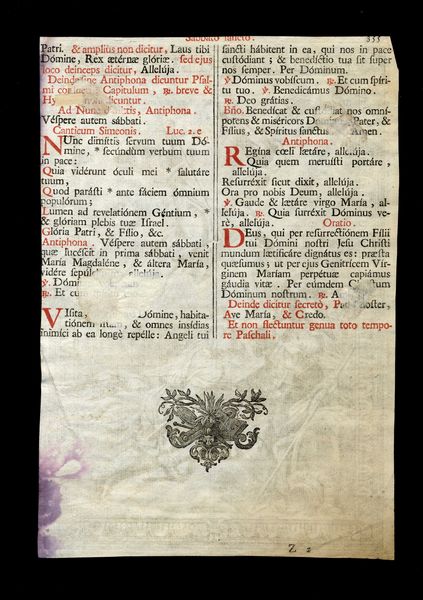 Sabbato sancto. 355
Patri. & amplius non dicitur, Laus tibi
Dómine, Rex ætérnæ glóriæ. sed ejus
loco deinceps dicitur, Allelúja.
Deinde sine Antiphona dicuntur Psal-
mi Capitulum, ℟. breve &
Hy non dicuntur.
Ad Nunc Antiphona.
Véspere autem sábbati.
Canticum Simeonis. Luc. 2. e
NUnc dimíttis servum tuum Dó-
mine, * secúndùm verbum tuum
in pace:
Quia vidérunt óculi mei * salutáre
tuum,
Quod parásti * ante fáciem ómnium
populórum;
Lumen ad revelatiónem Géntium, *
& glóriam plebis tuæ Israel.
Glória Patri, & Fílio, &c.
Antiphona. Véspere autem sábbati,
quæ lucéscit in prima sábbati, venit
María Magdaléne, & áltera María,
vidére allelúja.
℣. Dómi
℟. Et cu
VIsita, Dómine, habita-
tiónem istam, & omnes insídias
inimíci ab ea longè repélle: Angeli tui
sancti hábitent in ea, qui nos in pace
custódiant; & benedíctio tua sit super
nos semper. Per Dóminum.
℣. Dóminus vobíscum. ℟. Et cum spíri-
tu tuo. ℣. Benedicámus Dómino.
℟. Deo grátias.
Bño. Benedícat & custódiat nos omní-
potens & miséricors Dominus, Pater, &
Fílius, & Spíritus sanctus. Amen.
Antiphona.
REgína cœli lætáre, allelúja.
Quia quem meruísti portáre,
allelúja.
Resurréxit sicut dixit, allelúja.
Ora pro nobis Deum, allelúja.
℣. Gaude & lætáre virgo María, al-
lelúja. ℟. Quia surréxit Dóminus ve-
rè, allelúja. Oratio.
DEus, qui per resurrectiónem Fílii
tui Dómini nostri Jesu Christi
mundum lætificáre dignátus es: præsta
quæsumus; ut per ejus Genitrícem Vír-
ginem Maríam perpétuæ capiámus
gáudia vitæ. Per eúmdem Christum
Dóminum nostrum. ℟. A
Deinde dicitur secretò, Pater noster,
Ave María, & Credo.
Et non flectuntur genua toto tempo-
re Paschali.
Z 2